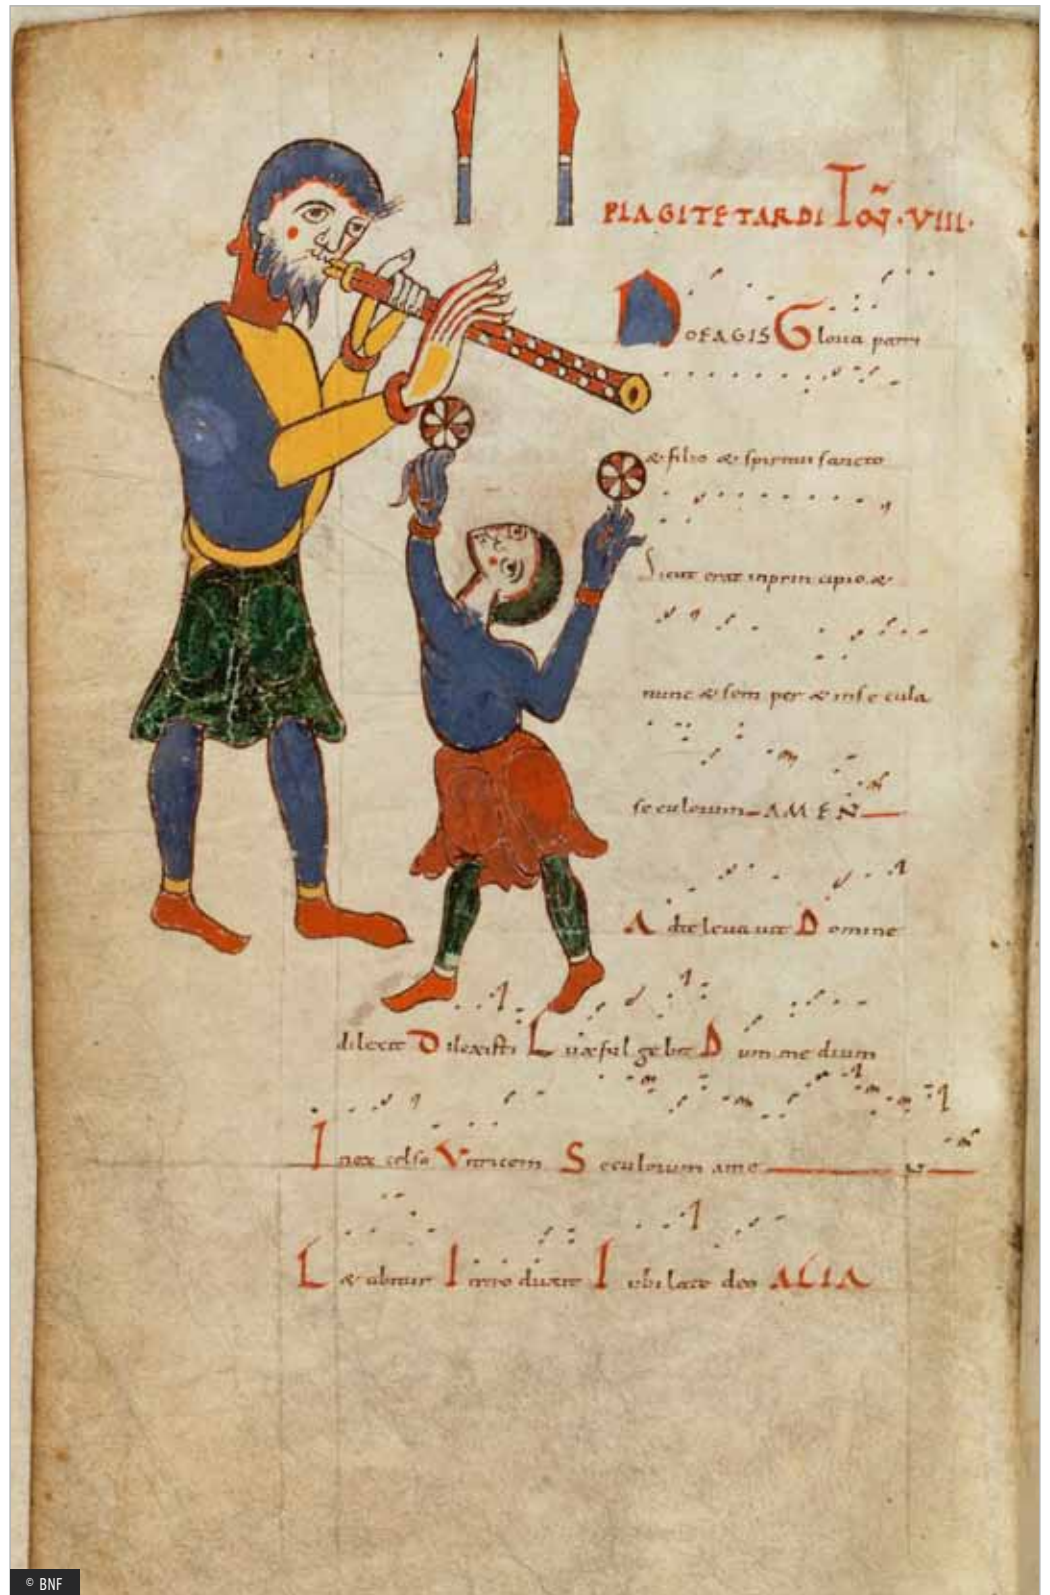 PLAGI TETARDI TOÑ · VIII ·
NOEAGIS Gloria patri
& filio & spiritui sancto
Sicut erat inprincipio &
nunc & sem per & inse cula
seculorum AMEN
Ad te leua uit Domine
dilexit Dilexisti Lux ful ge bit Dum me dium
In ex celso Seculorum ame N
L& abitur Intro duxit Iubilate deo ALIA
© BNF